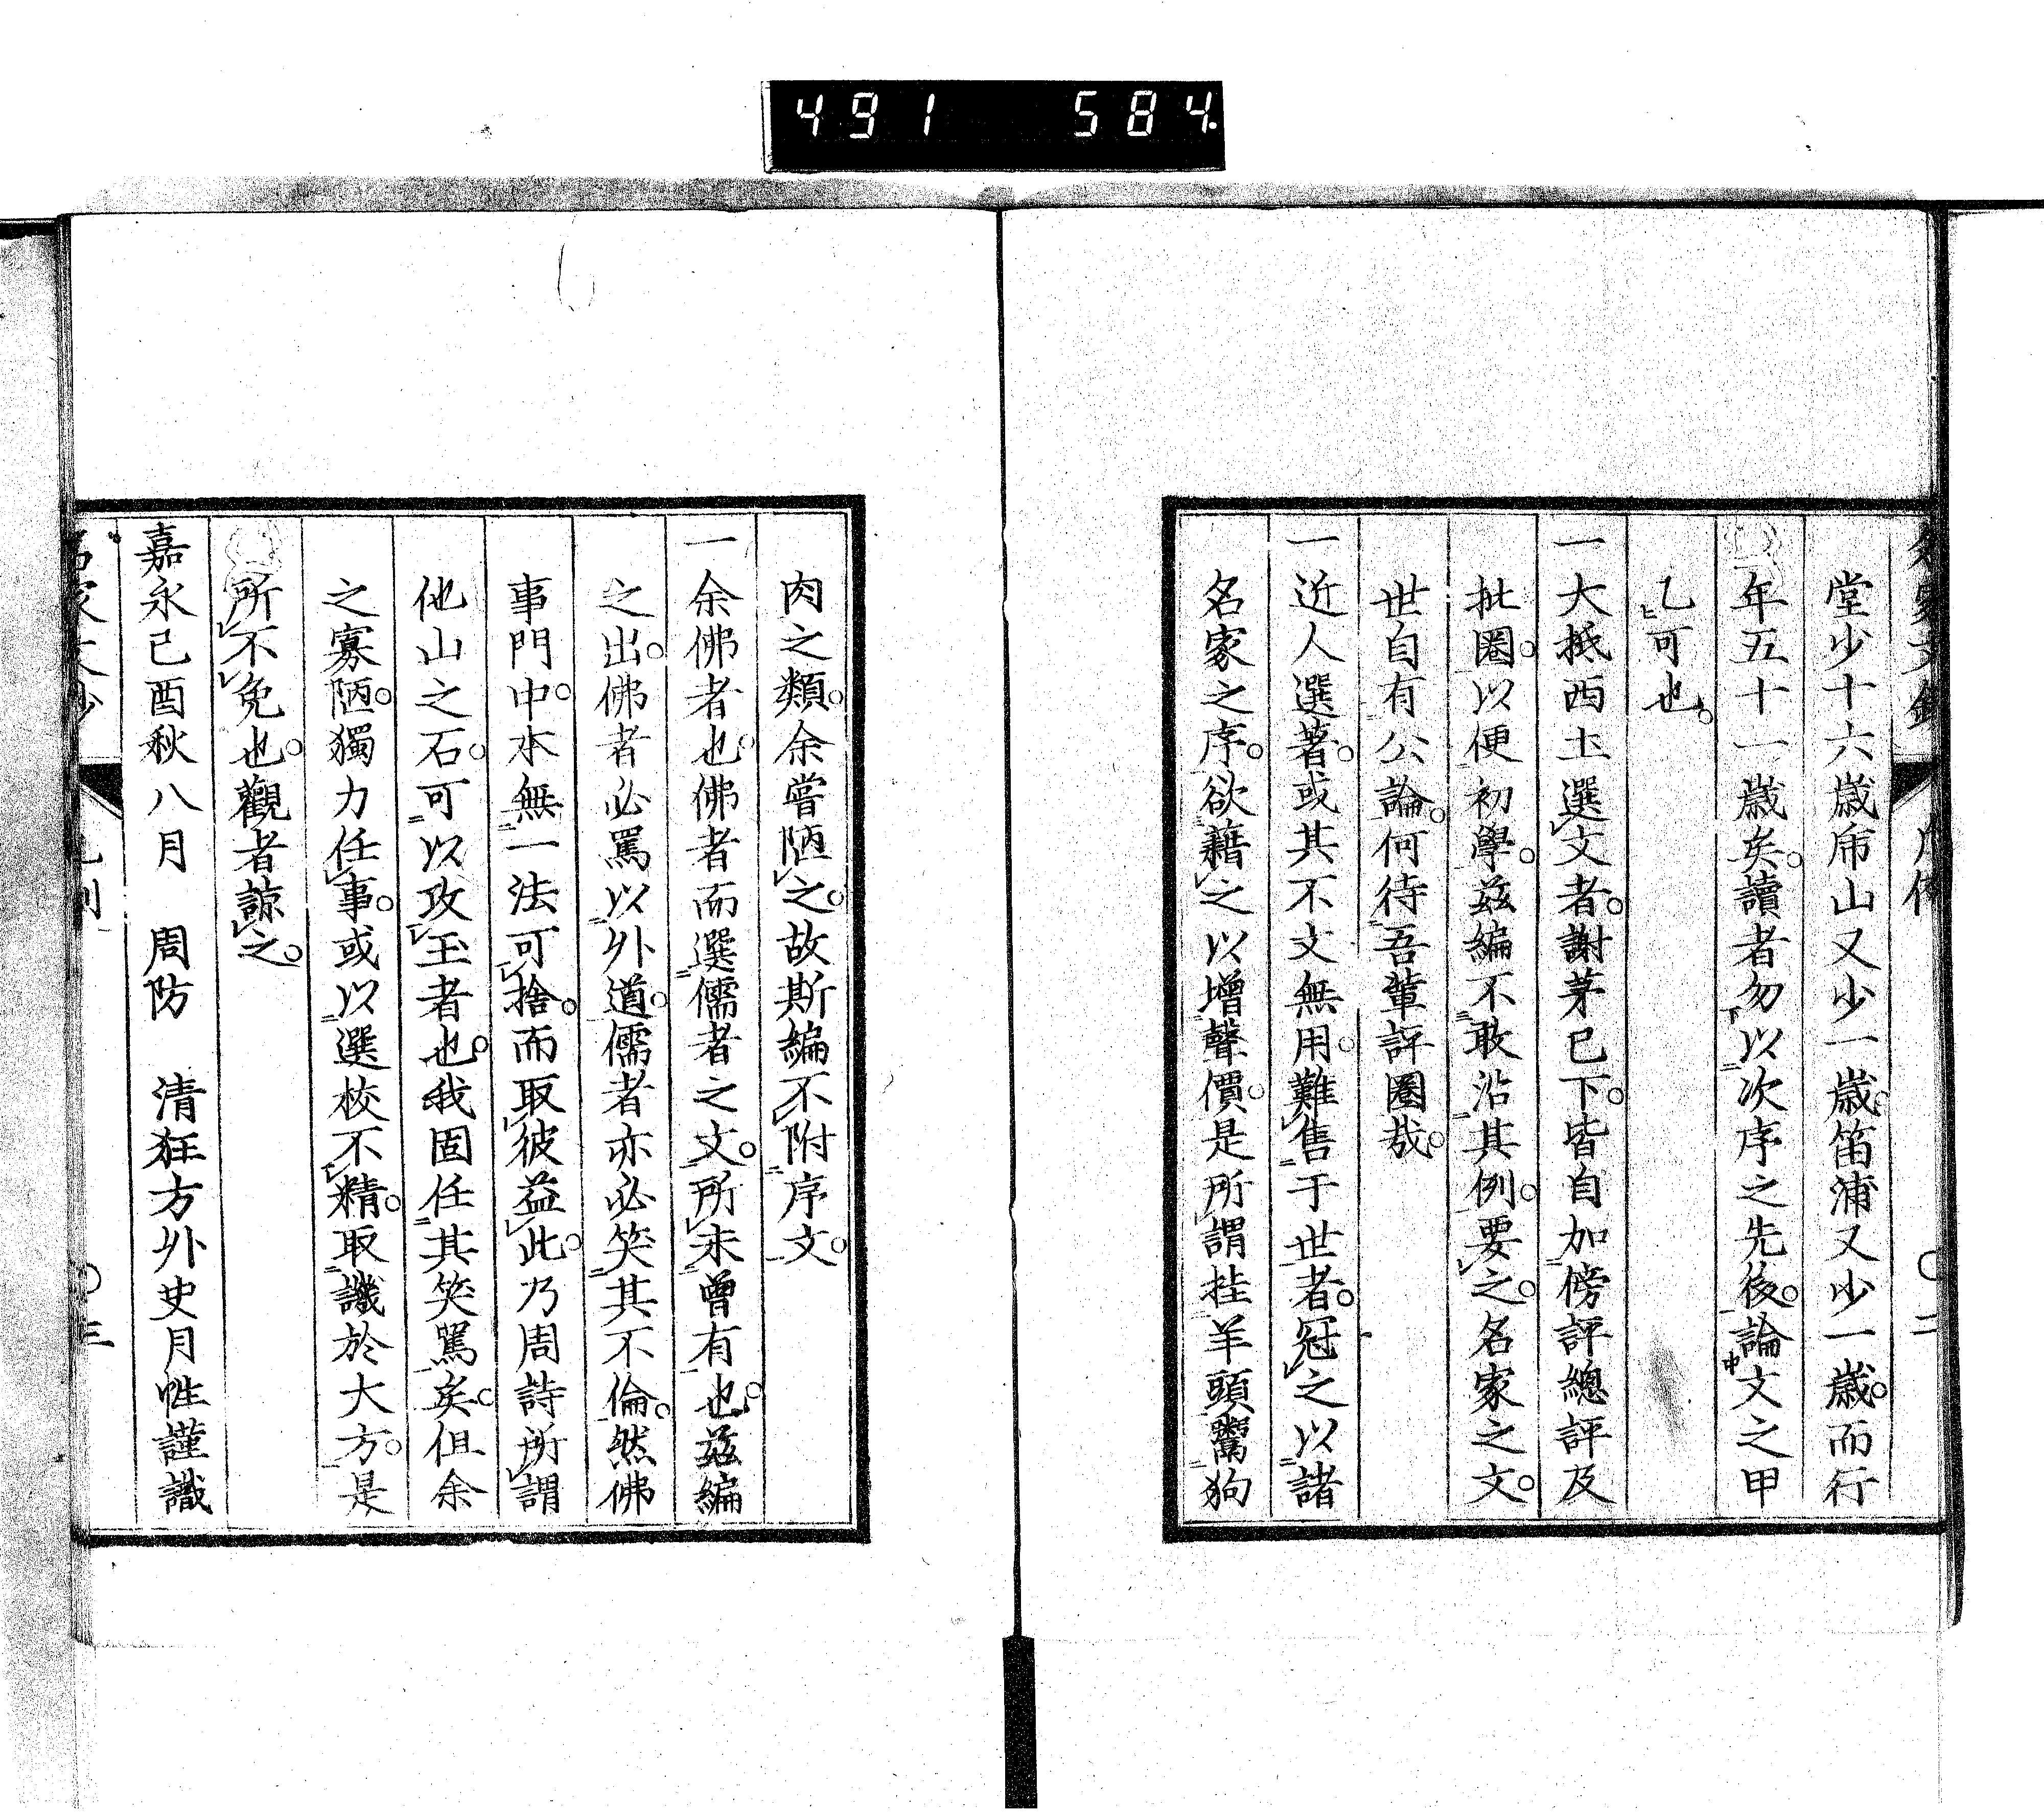 491 584.
堂少十六歳帝山又少一歳。笛浦又少一歳。而行
年五十一歳矣。讀者勿以次序之先後。論文之甲
乙可也。
一大抵西土選文者。謝茅已下。皆自加傍評總評及
批圈。以便初學。茲編不敢沿其例。要之。名家之文。
世自有公論。何待吾輩評圈哉。
一近人選著。或其不文無用。難售于世者。冠之以諸
名家之序。欲藉之以增聲價。是所謂挂羊頭鬻狗
肉之類。余嘗陋之。故斯編不附序文。
一余佛者也。佛者而選儒者之文。所未曾有也。茲編
之出。佛者必罵以外道。儒者亦必笑其不倫。然佛
事門中。本無一法可捨。而取彼益此。乃周詩所謂
他山之石。可以攻玉者也。我固任其笑罵矣。但余
之寡陋。獨力任事。或以選校不精。取譏於大方。是
所不免也。觀者諒之。
嘉永己酉秋八月 周防 清狂方外史月性謹識
名家文鈔 凡例 〇三